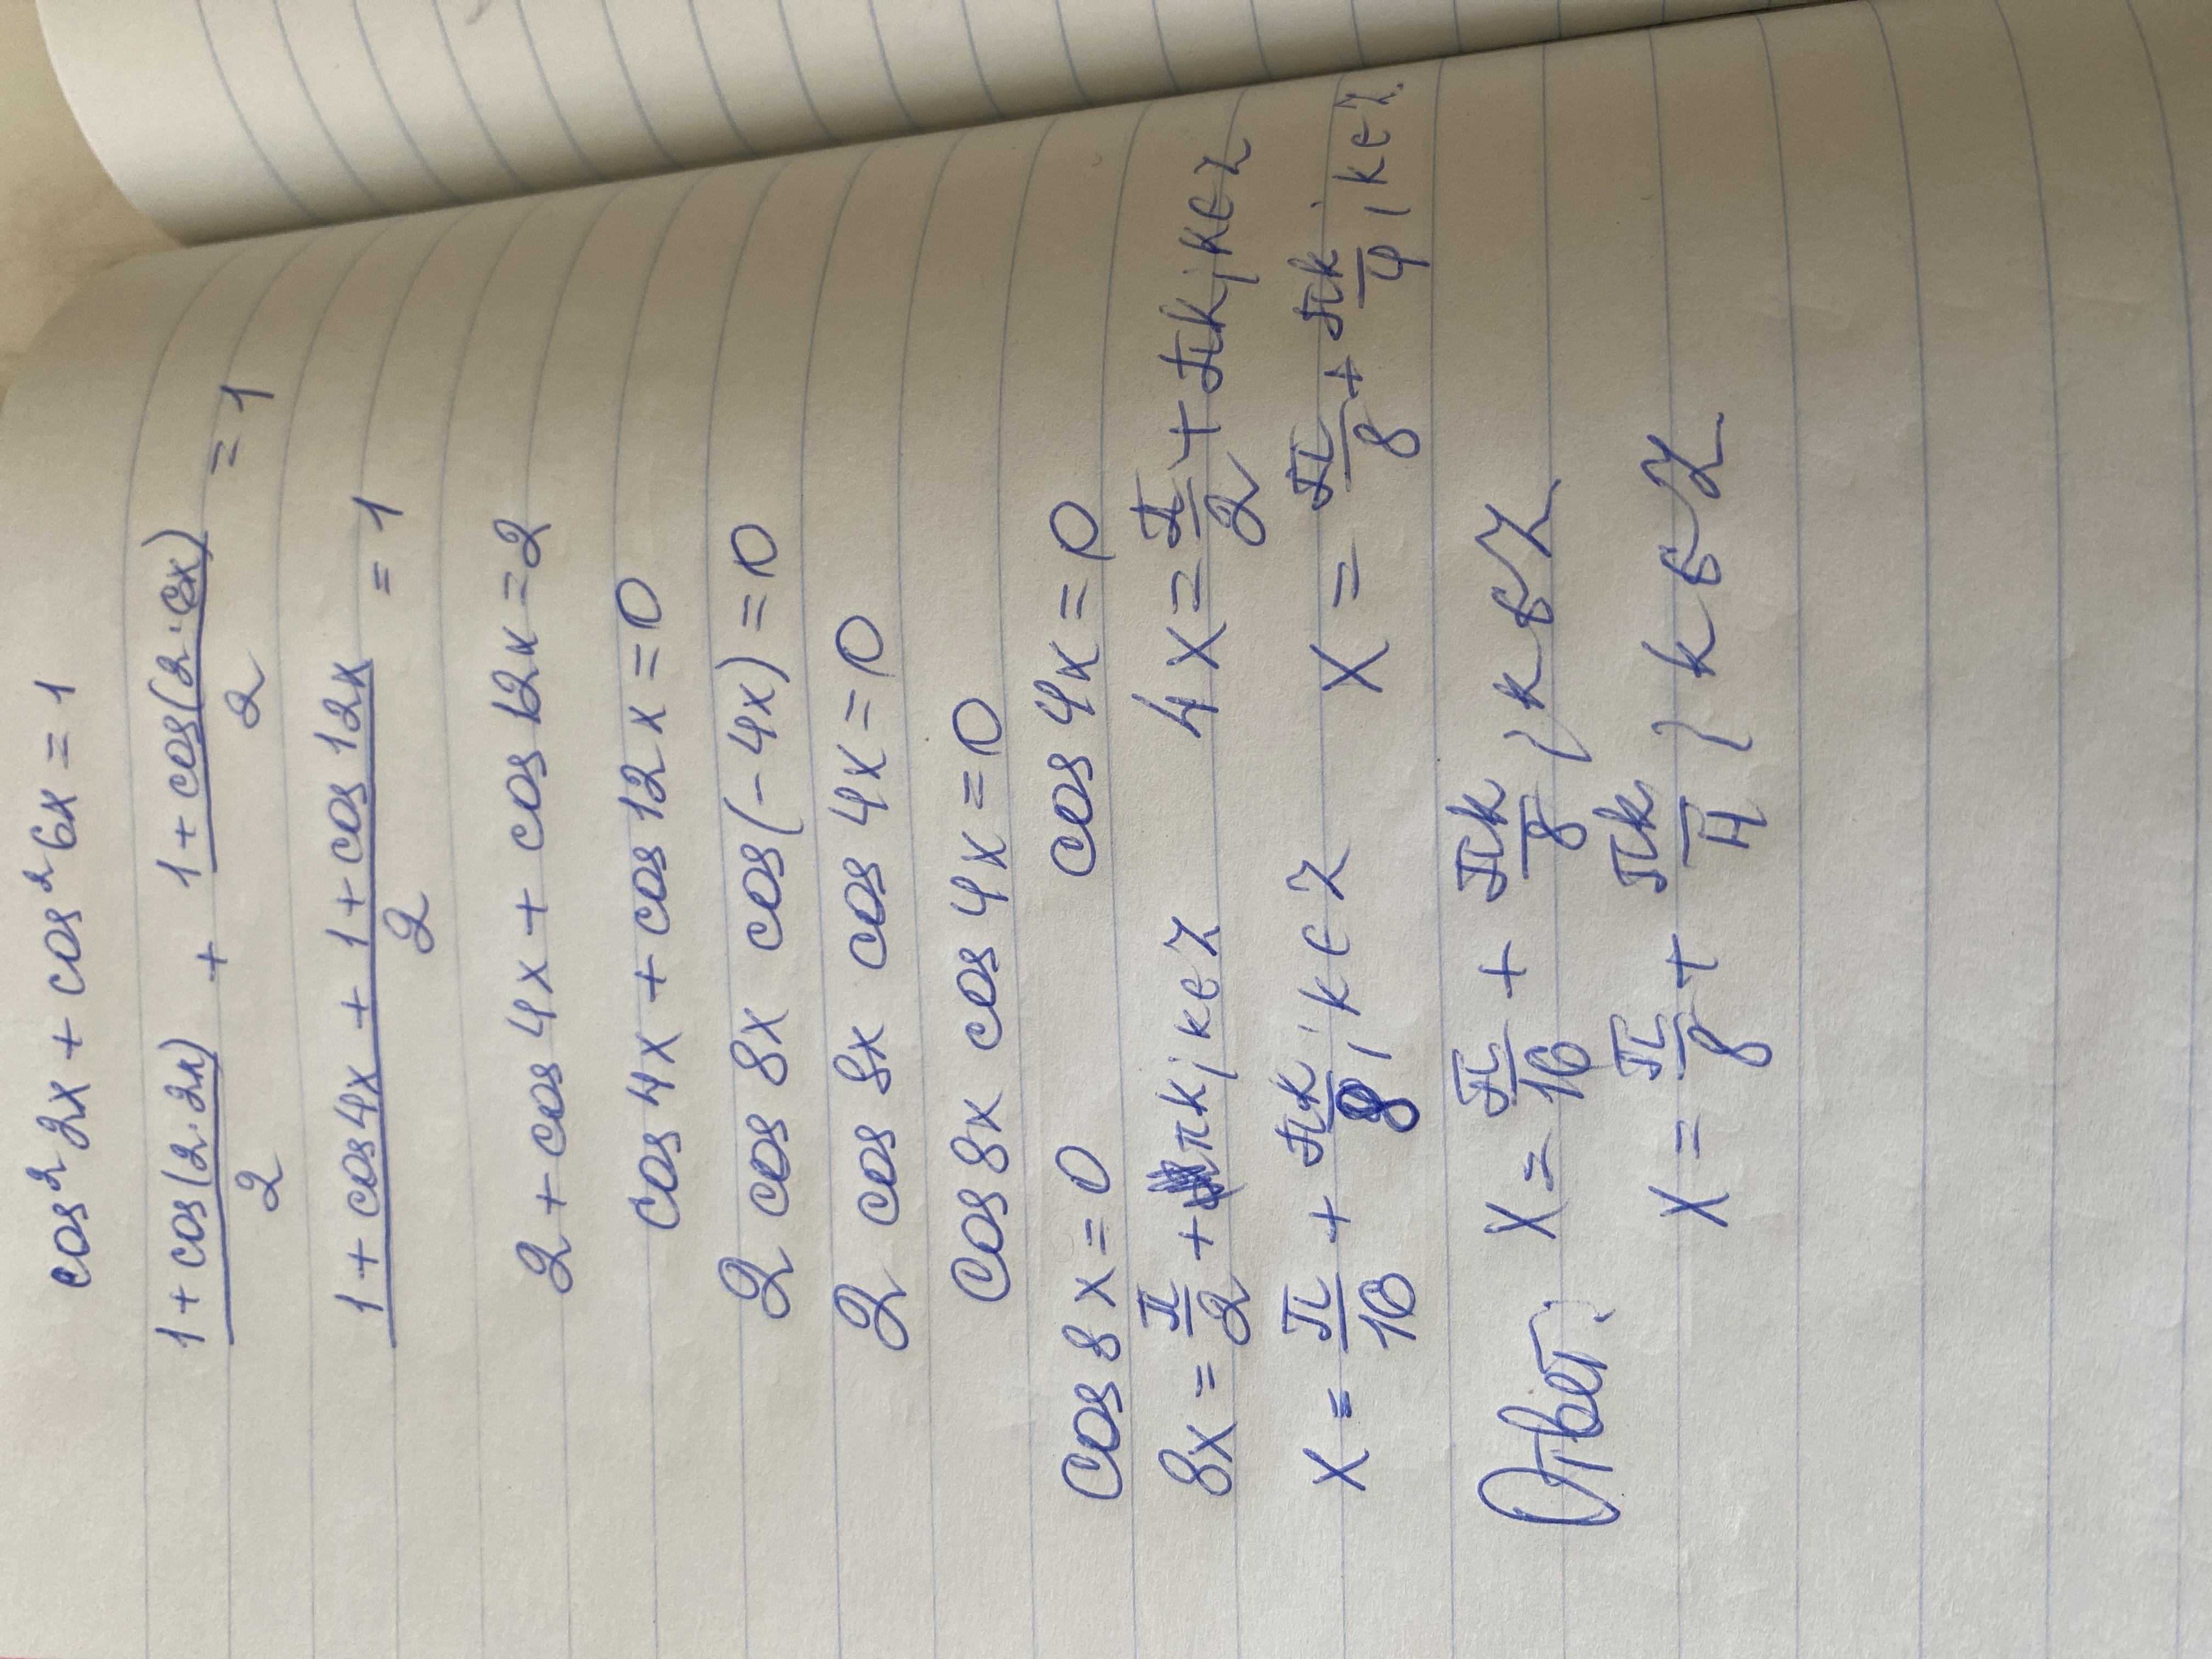 cos²2x + cos²6x = 1
(1 + cos(2·2x))/2 + (1 + cos(2·6x))/2 = 1
(1 + cos4x + 1 + cos 12x)/2 = 1
2 + cos 4x + cos 12x = 2
cos 4x + cos 12x = 0
2 cos 8x cos(-4x) = 0
2 cos 8x cos 4x = 0
cos 8x cos 4x = 0
cos 8x = 0 cos 4x = 0
8x = π/2 + πk; k∈Z 4x = π/2 + πk; k∈Z
x = π/16 + πk/8; k∈Z x = π/8 + πk/4; k∈Z
Ответ: x = π/16 + πk/8, k∈Z
x = π/8 + πk/4, k∈Z